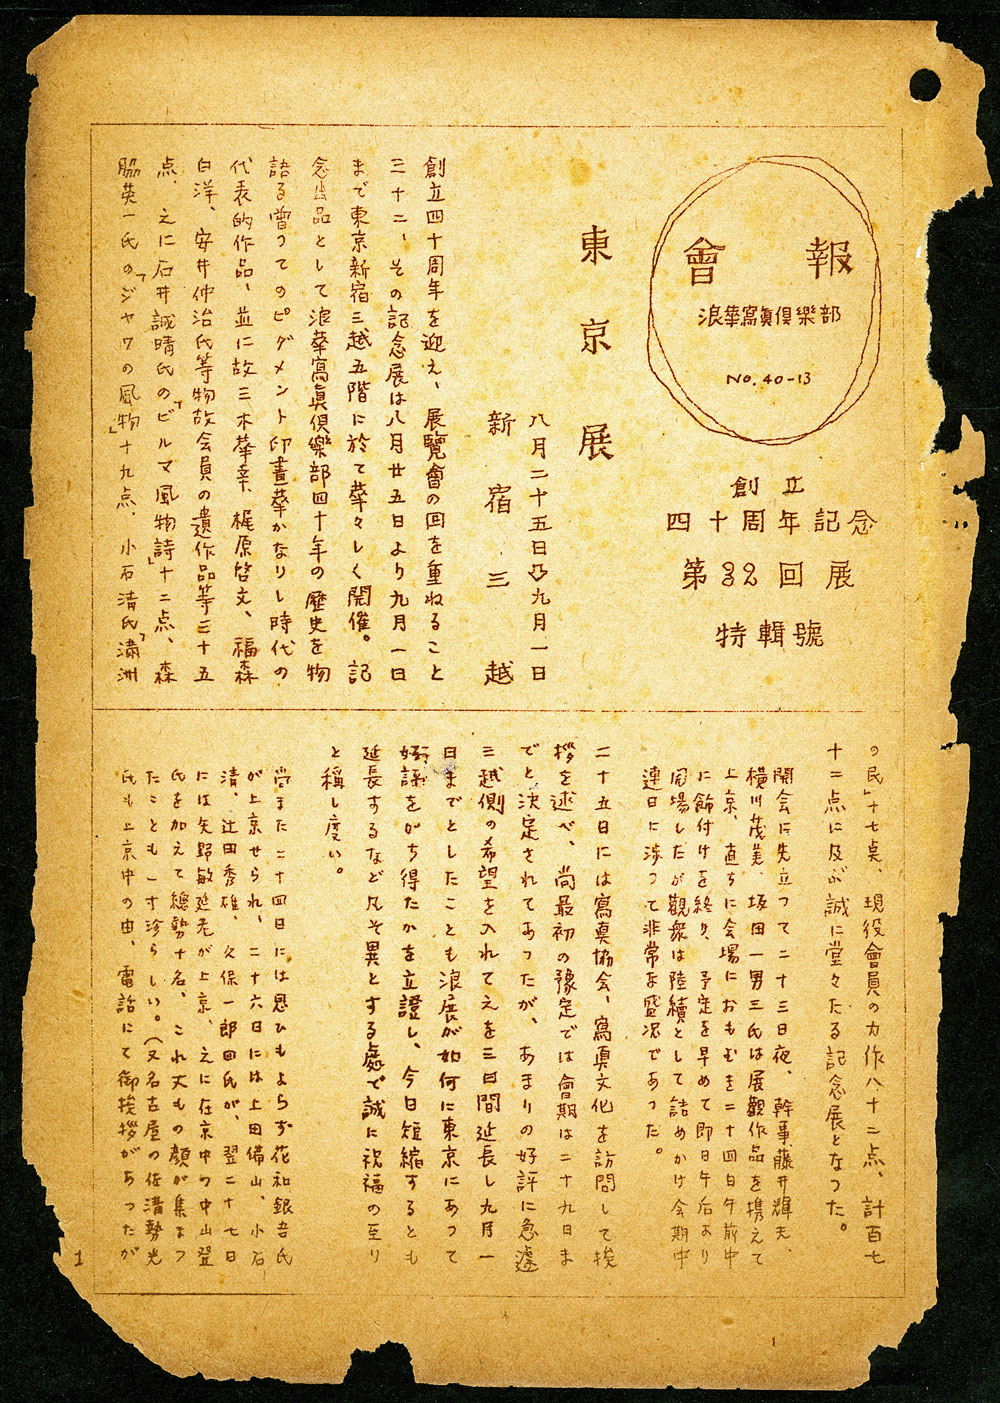 會報
浪華寫眞俱樂部
No. 40-13
創立
四十周年記念
第32回展
特輯號
東京展
八月二十五日⇨九月一日
新宿三越
創立四十周年を迎え、展覽會の回を重ねること
三十二、その記念展は八月廿五日より九月一日
まで東京新宿三越五階に於て華々しく開催。記
念出品として浪華寫眞俱樂部四十年の歷史を物
語る曾つてのピグメント印畫華かなりし時代の
代表的作品、並に故三木華幸、梶原啓文、福森
白洋、安井仲治氏等物故会員の遺作品等三十五
点、之に石井誠晴氏の「ビルマ風物詩」十二点、森
脇英一氏の「ジャワの風物」十九点、小石清氏「瀟洲
の民」十七点、現役會員の力作八十二点、計百七
十二点に及ぶ誠に堂々たる記念展となつた。
開会に先立つて二十三日夜、幹事藤井輝夫、
横川茂美、坂田一男三氏は展觀作品を携えて
上京、直ちに会場におもむき二十四日午前中
に飾付けを終り、予定を早めて即日午后より
開場したが觀衆は陸續として詰めかけ会期中
連日に涉つて非常な盛况であつた。
二十五日には寫眞協会、寫眞文化を訪問して挨
拶を述べ、尚最初の豫定では會期は二十九日ま
でと決定されてあつたが、あまりの好評に急遽
三越側の希望を入れて之を三日間延長し九月一
日までとしたことも浪展が如何に東京にあつて
好評をかち得たかを立證し、今日短縮するとも
延長するなど凡そ異とする處で誠に祝福の至り
と稱し度い。
尚また二十四日には思ひもよらず花和銀吾氏
が上京せられ、二十六日には上田備山、小石
清、辻田秀雄、久保一郎四氏が、翌二十七日
には矢野敏延老が上京、之に在京中の中山登
氏を加えて總勢十名、これ丈もの顏が集まつ
たことも一寸珍らしい。(又名古屋の佐溝勢光
氏も上京中の由、電話にて御挨拶があつたが
1